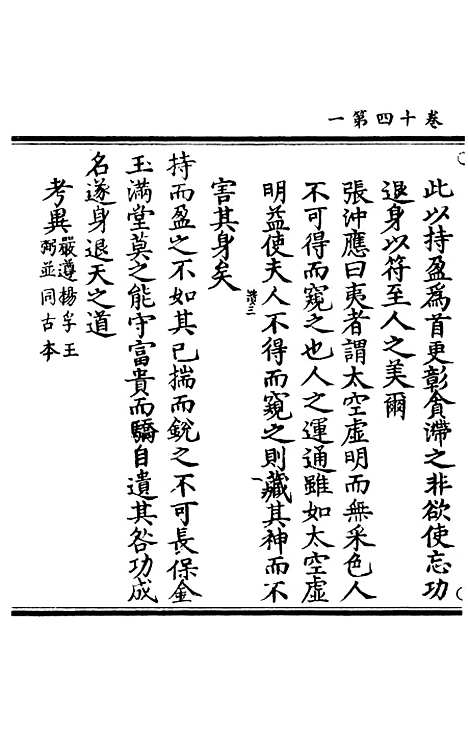 一第四十卷
此以持盈爲首更彰貪滯之非欲使忘功
退身以符至人之美爾
張沖應曰夷者謂太空虛明而無采色人
不可得而窺之也人之運通雖如太空虛
明益使夫人不得而窺之則藏其神而不
害其身矣
持而盈之不如其已揣而銳之不可長保金
玉滿堂莫之能守富貴而驕自遺其咎功成
名遂身退天之道
考異嚴遵揚孚王
弼並同古本